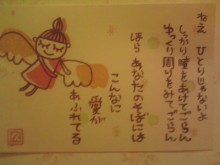 ねえ ひとりじゃないよ
しっかり瞳をあけてごらん
ゆっくり周りをみてごらん
ほら あなたのそばには
こんなに
愛が
あふれてる